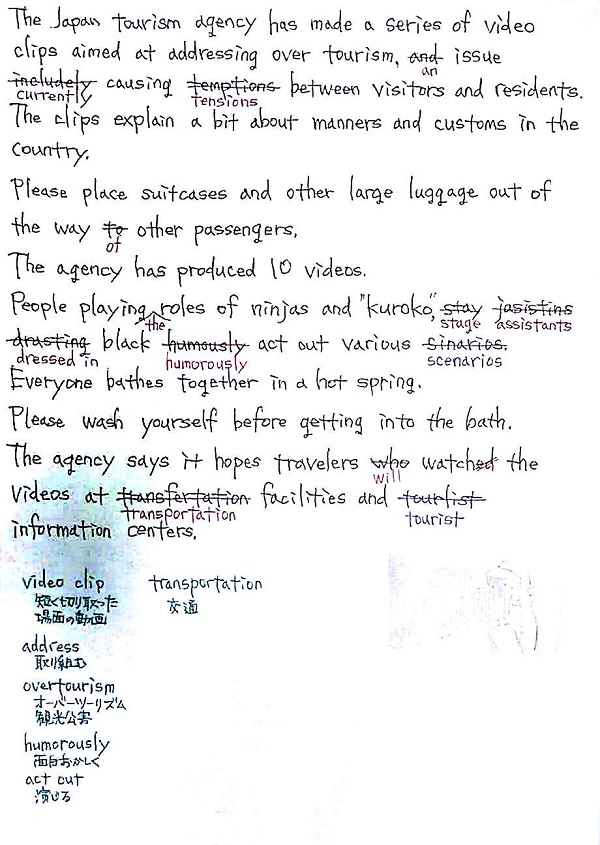 The Japan tourism agency has made a series of video
clips aimed at addressing over tourism, and issue
an
includely causing temptions between visitors and residents.
currently tensions
The clips explain a bit about manners and customs in the
country.
Please place suitcases and other large luggage out of
the way to other passengers,
of
The agency has produced 10 videos.
People playing roles of ninjas and "kuroko", stay jasistins
the stage assistants
drasting black humously act out various sinarios.
dressed in humorously scenarios
Everyone bathes together in a hot spring.
Please wash yourself before getting into the bath.
The agency says it hopes travelers who watched the
will
videos at transfertation facilities and tourlist
transportation tourist
information centers,
video clip transportation
短く切り取った 交通
場面の動画
address
取り組む
overtourism
オーバーツーリズム
観光公害
humorously
面白おかしく
act out
演じる